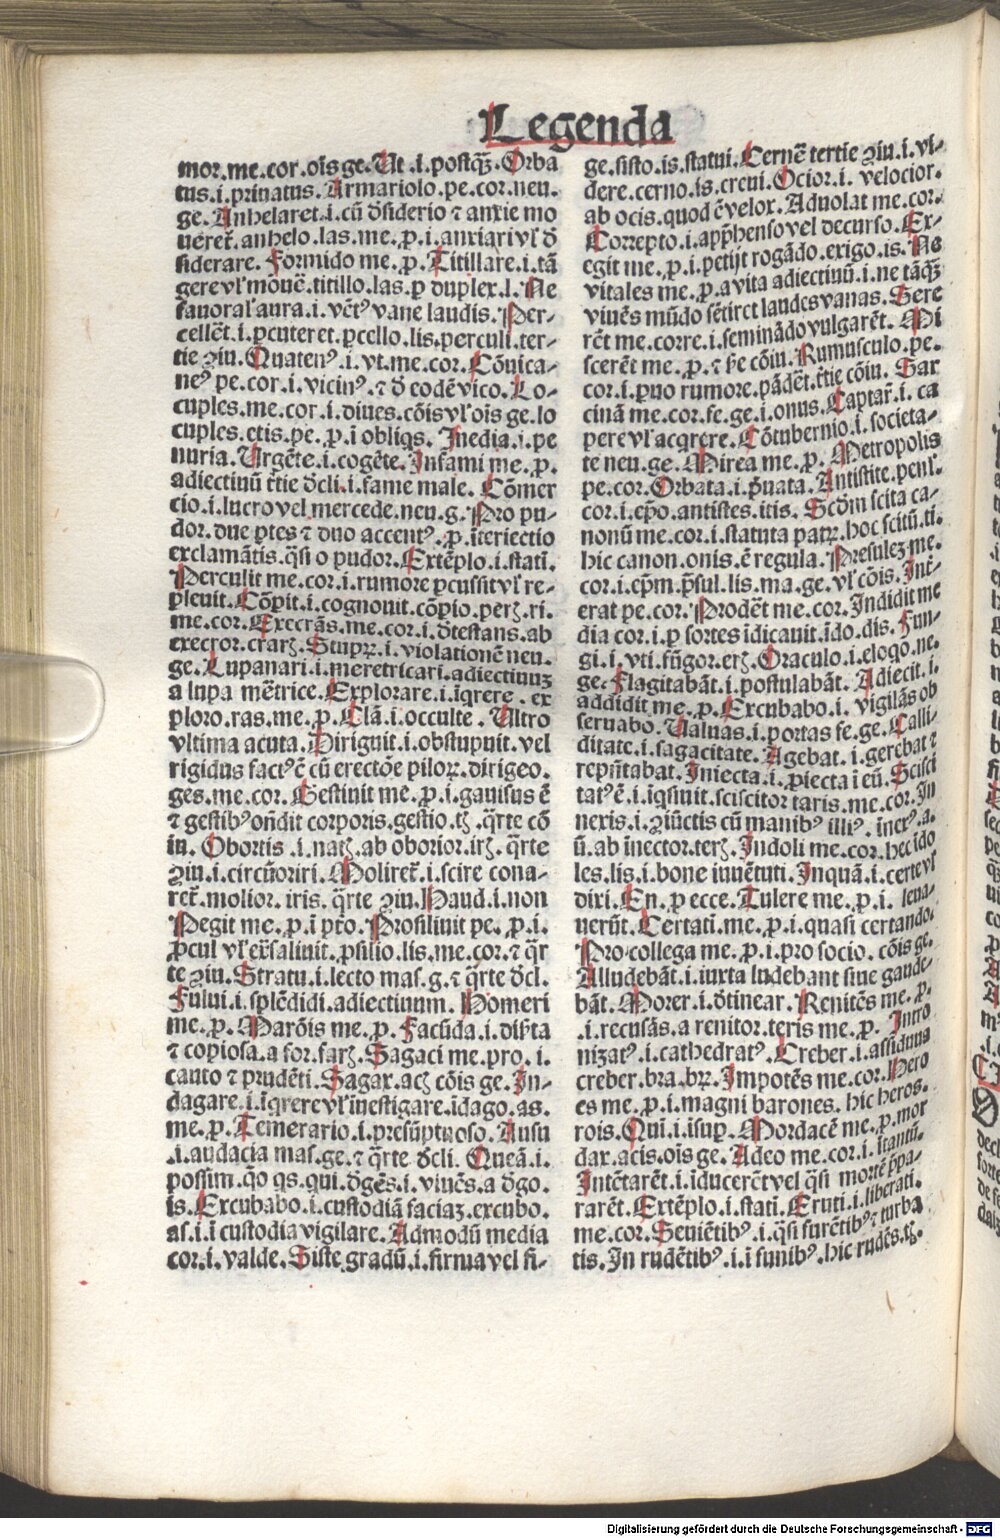 Legenda
mor.me.cor.oı̄s ge.Ut.i.postqꝫ̄.Orba
tus.i.priuatus.Armariolo.pe.cor.neu.
ge.Anhelaret.i.cū ďsiderio ⁊ anxie mo
ueret̉.anhelo.las.me.ꝓ.i.anxiari vł ď
siderare.Formido me.ꝓ.Titillare.i.tā
gere vł mouē.titillo.las.ꝑ duplex.l.Ne
fauoral̓ aura.i.vētꝰ vane laudis.Per-
cellēt.i.ꝑcuteret.ꝑcello.lis.perculi.ter-
tie ꝯiu.Quatenꝰ.i.vt.me.cor.Cōuica-
neꝰ pe.cor.i.vicinꝰ.⁊ ď eodē vico.Lo-
cuples.me.cor.i.diues.cōis vł oı̄s ge.lo
cuples.etis.pe.ꝓ.ī obliqs.Inedia.i.pe
nuria.Urgēte.i.cogēte.Infami me.ꝓ.
adiectiuū t̄tie ďcli.i.fame male.Cōmer
cio.i.lucro vel mercede.neu.g.Pro pu-
dor.due ꝑtes ⁊ duo accentꝰ.ꝓ.īteriectio
exclamātis.q̄si o pudor.Extēplo.i.stati.
Perculit me.cor.i.rumore ꝑcussit vł re-
pleuit.Cōꝑit.i.cognouit.cōꝑio.perꝫ.ri.
me.cor.Execrās.me.cor.i.ďtestans.ab
execror.crarꝫ.Stupꝝ.i.violationē neu.
ge.Lupanari.i.meretricari.adiectiuuꝫ
a lupa mētrice.Explorare.i.īqrere.ex
ploro.ras.me.ꝓ.Clā.i.occulte.Ultro
vltima acuta.Diriguit.i.obstupuit.vel
rigidus factꝰ ē cū erectōe pilorꝝ.dirigeo.
ges.me.cor.Gestiuit me.ꝓ.i.gauisus ē
⁊ gestibꝰ oñdit corporis.gestio.tꝫ.q̄rte cō
iu.Obortis.i.natꝫ.ab oborior.irꝫ.q̄rte
ꝯiu.i.circūoriri.Moliret̉.i.scire cona-
ret̉.molior.iris.q̄rte ꝯiu.Haud.i.non
Pegit me.ꝓ.ī pto.Prosiliuit pe.ꝓ.i.
ꝓcul vł ex̄saliuit.ꝓsilio.lis.me.cor.⁊ q̄r
te ꝯiu.Stratu.i.lecto mas.g.⁊ q̄rte ďcl.
Fului.i.splēdidi.adiectiuum.Homeri
me.ꝓ.Marōis me.ꝓ.Facūda.i.disrta
⁊ copiosa.a for.farꝫ.Sagaci me.pro.i.
cauto ⁊ prudēti.Sagax.acꝫ cōis ge.In-
dagare.i.īqrere vł īnestigare.īdago.as.
me.ꝓ.Temerario.i.presūptuoso.Ausu
.i.audacia mas.ge.⁊ q̄rte ďcli.Queā.i.
possim.qo qs.qui.ďgēs.i.viuēs.a ďgo.
is.Excubabo.i.custodiā faciaꝫ.excubo.
as.i.ī custodia vigilare.Admodū media
cor.i.valde.Siste gradū.i.firma vel fi-
ge.sisto.is.statui.Cernē tertie ꝯiu.i.vi-
dere.cerno.is.creui.Ocior.i.velocior.
ab ocis.quod ē velox.Aduolat me.cor.
Correpto.i.app̄henso vel decurso.Ex-
egit me.ꝓ.i.petijt rogādo.exigo.is.Ne
vitales me.ꝓ.a vita adiectiuū.i.ne tāqꝫ
viuēs mūdo sētiret laudes vanas.Sere
rēt me.corre.i.seminādo vulgarēt.Mi
scerēt me.ꝓ.⁊ scē cōiu.Rumusculo.pe.
cor.i.ꝑuo rumore.pādēt.t̄tie cōiu.Sar
cinā me.cor.fe.ge.i.onus.Captar̄.i.ca
pere vł acqrere.Cōtubernio.i.societa-
te neu.ge.Mirea me.ꝓ.Metropolis
pe.cor.Orbata.i.ṗuata.Antistite.penl̓.
cor.i.ep̄o.antistes.itis.Scd̄m scita ca-
nonū me.cor.i.statuta patꝝ.hoc scitū.ti.
hic canon.onis.ē regula.Presulez me.
cor.i.ep̄m.p̄sul.lis.ma.ge.vł cōis.Int̄-
erat pe.cor.Prodēt me.cor.Indidit me
dia cor.i.ꝑ sortes īdicauit.īdo.dis.Fun-
gi.i.vti.fūgor.erꝫ.Oraculo.i.eloqo.ne.
ge.Flagitabāt.i.postulabāt.Adiecit.i.
addidit me.ꝓ.Excubabo.i.vigilās ob
seruabo.Ualuas.i.portas fe.ge.Calli-
ditate.i.sagacitate.Agebat.i.gerebat ⁊
rep̄ntabat.Iniecta.i.ꝓiecta ī eū.Scisci
tatꝰ ē.i.īqsiuit.sciscitor taris.me.cor.In
nexis.i.ꝯiūctis cū manibꝰ illiꝰ.īnexꝰ.a.
ū.ab inector.terꝫ.Indoli me.cor.hec ido
les.lis.i.bone iuuētuti.Inquā.i.certe vł
dixi.En.ꝑ ecce.Tulere me.ꝓ.i.leua-
uerūt.Certati.me.ꝓ.i.quasi certando.
Pro collega me.ꝓ.i.pro socio.cōis ge.
Alludebāt.i.iuxta ludebant siue gaude-
bāt.Morer.i.ďtinear.Renitēs me.ꝓ.
.i.recusās.a renitor.teris me.ꝓ.Intro
nizatꝰ.i.cathedratꝰ.Creber.i.assiduus
creber.bra.brꝝ.Impotēs me.cor.Hero
es me.ꝓ.i.magni barones.hic heros.
rois.Quī.i.īsuꝑ.Mordacē me.ꝓ.mor
dax.acis.oı̄s ge.Adeo me.cor.i.ītantū.
Intētarēt.i.īducerēt vel q̄si mortē p̄pa-
rarēt.Extēplo.i.stati.Eruti.i.liberati.
me.cor.Seuiētibꝰ.i.q̄si furētibꝰ ⁊ turba
tis.In rudētibꝰ.i.ī funibꝰ.hic rudēs.tꝫ.
Digitalisierung gefördert durch die Deutsche Forschungsgemeinschaft - DFG